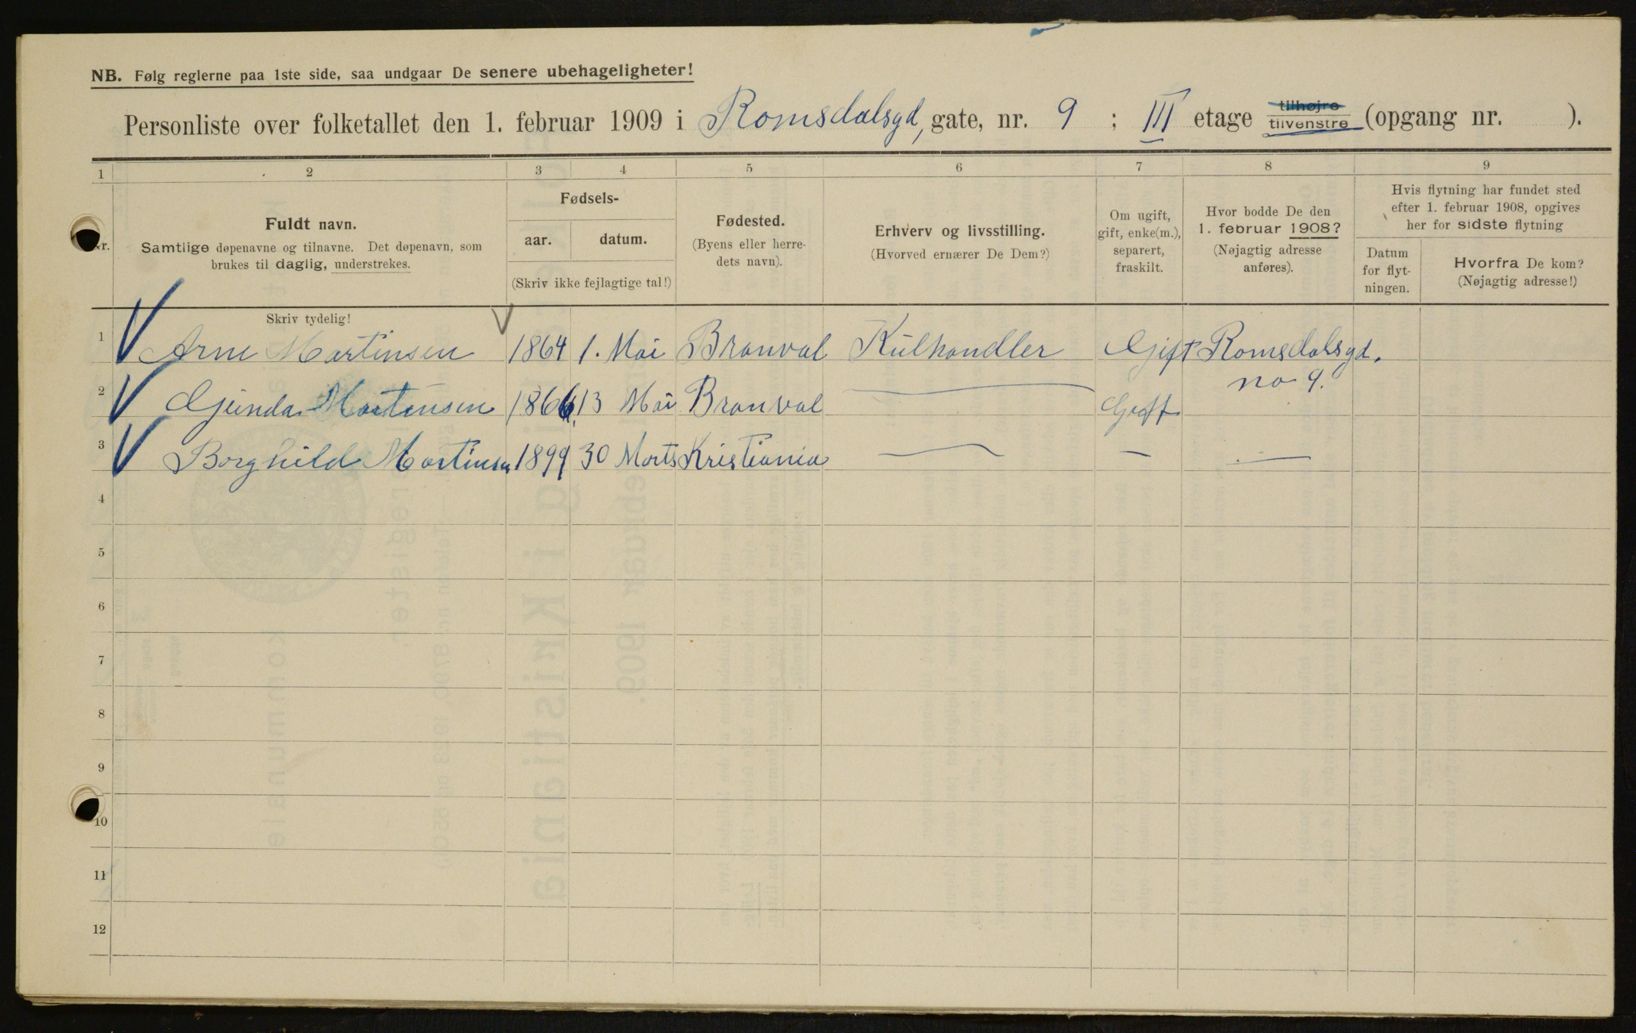 NB. Følg reglerne paa 1ste side, saa undgaar De senere ubehageligheter!
Personliste over folketallet den 1. februar 1909 i Romsdalsgd, gate, nr. 9 ; III etage tilhøjre tilvenstre (opgang nr. ).
1 2 3 4 5 6 7 8 9
Nr.
Fuldt navn.
Samtlige døpenavne og tilnavne. Det døpenavn, som
brukes til daglig, understrekes.
Fødsels-
aar. datum.
(Skriv ikke fejlagtige tal!)
Fødested.
(Byens eller herre-
dets navn).
Erhverv og livsstilling.
(Hvorved ernærer De Dem?)
Om ugift,
gift, enke(m.),
separert,
fraskilt.
Hvor bodde De den
1. februar 1908?
(Nøjagtig adresse
anføres).
Hvis flytning har fundet sted
efter 1. februar 1908, opgives
her for sidste flytning
Datum
for flyt-
ningen.
Hvorfra De kom?
(Nøjagtig adresse!)
Skriv tydelig!
1 Arne Martinsen 1864 1. Mai Branval Kulhandler Gift Romsdalsgd.
no 9.
2 Gunda Martinsen 1866 13 Mai Branval — Gift
3 Borghild Martinsen 1899 30 Marts Kristiania — — —
4
5
6
7
8
9
10
11
12